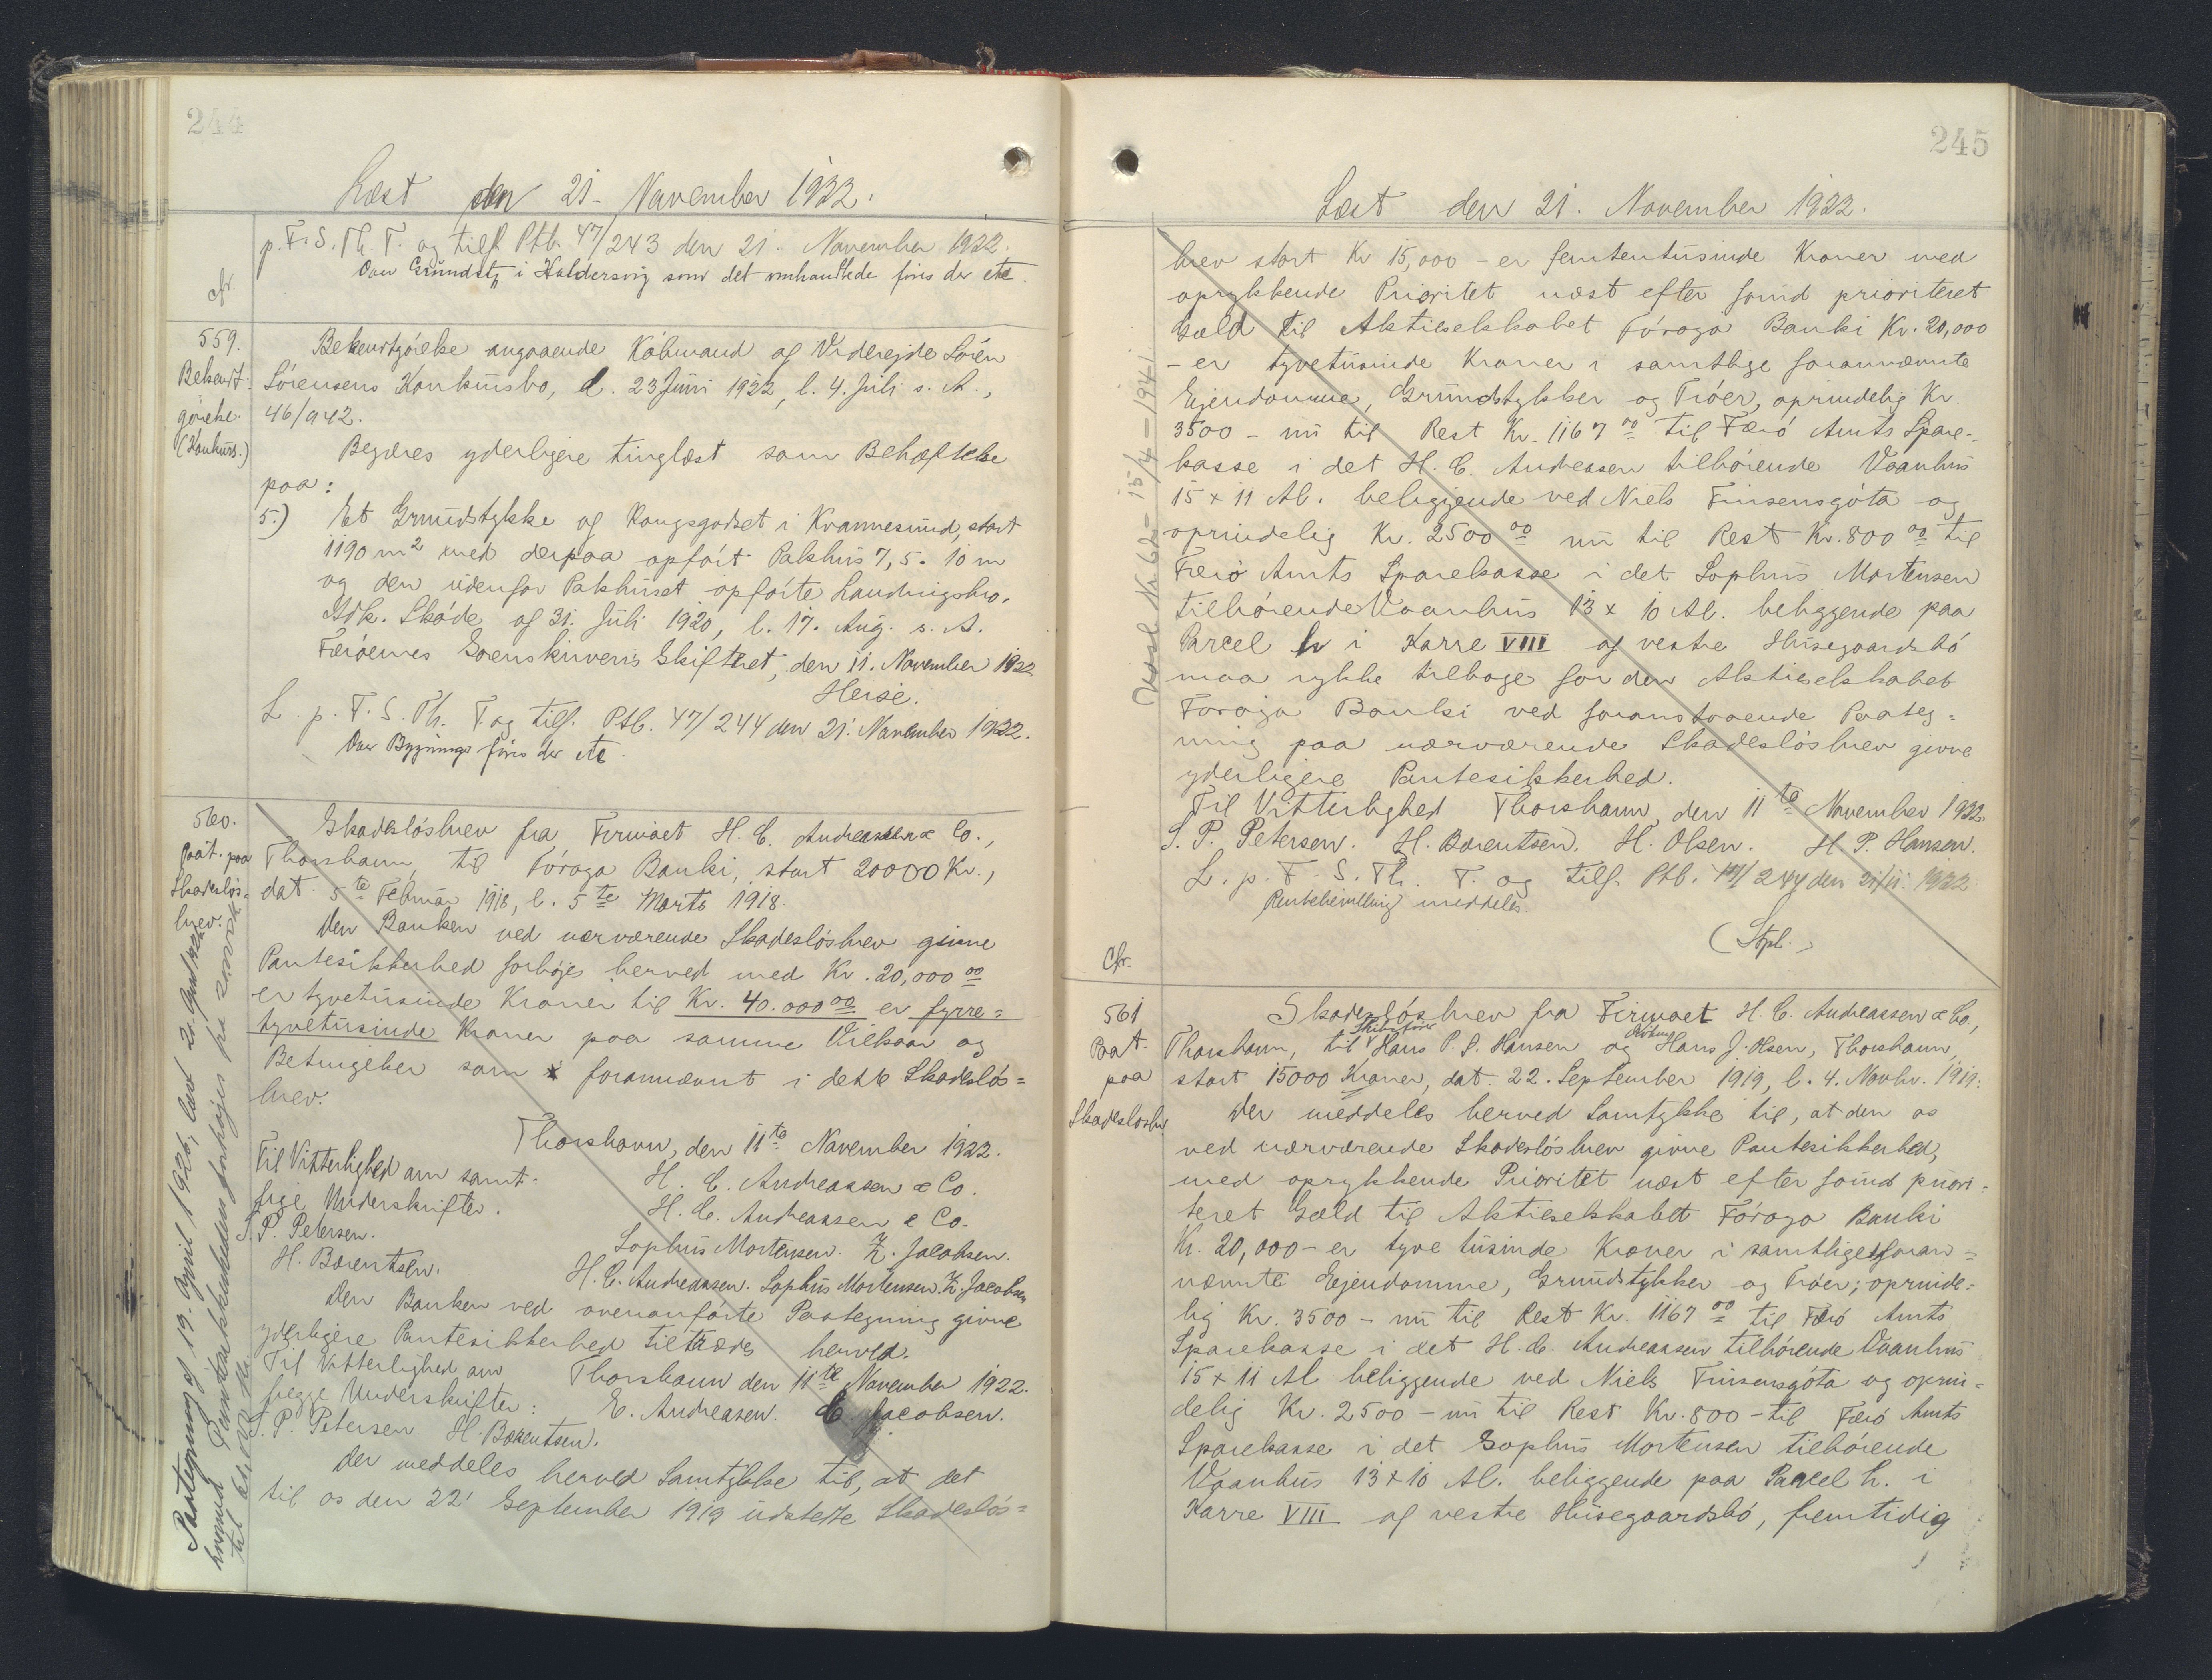 244
Læst den 21. November 1922.
p. F. S. Th. T. og tilf. Ptb. 47/243 den 21. November 1922.
Over Grundst. i Haldersvig som det omhandlede føres der ete.
cfr.
559.
Bekendt-
gørelse
(Konkurs.)
Bekendtgørelse angaaende Købmand af Videreide Søren
Sørensens Konkursbo, d. 23 Juni 1922, l. 4. Juli s. A.,
46/942.
Begæres yderligere tinglæst som Behæftelse
paa:
5.) Et Grundstykke af Kongsgodset i Kvannesund, stort
1190 m² med derpaa opført Pakhus 7,5 . 10 m
og den udenfor Pakhuset opførte Landingsbro.
Adk. Skøde af 31. Juli 1920, l. 17. Aug. s. A.
Færøernes Sorenskriveris Skifteret, den 11. November 1922
Heise.
L. p. F. S. Th. T og tilf. Ptb. 47/244 den 21. November 1922.
Over Bygninge føres der ete.
560.
Paat. paa
Skadesløs-
brev.
Skadesløsbrev fra Firmaet H. C. Andreassen & Co.,
Thorshavn, til Føroya Banki, stort 20000 Kr.,
dat. 5te Februar 1918, l. 5te Marts 1918.
Den Banken ved nærværende Skadesløsbrev givne
Pantesikkerhed forhøjes herved med Kr. 20,000 00
er tyvetusinde Kroner til Kr. 40.000 00 er fyrre=
tyvetusinde Kroner paa samme Vilkaar og
Betingelser som forannævnt i dette Skadesløs=
brev.
Thorshavn, den 11te November 1922.
Til Vitterlighed om samt-
lige Underskrifter.
S. P. Petersen.
H. Barentsen.
H. C. Andreassen & Co.
H. C. Andreassen & Co.
Sophus Mortensen. K. Jacobsen.
H. C. Andreassen. Sophus Mortensen. K. Jacobsen
Den Banken ved ovenanførte Paategning givne
yderligere Pantesikkerhed tiltrædes herved.
Til Vitterlighed om
begge Underskrifter:
S. P. Petersen H. Barentsen.
Thorshavn den 11te November 1922.
E. Andreasen. C Jacobsen.
Der meddeles herved Samtykke til, at det
til os den 22' September 1919 udstedte Skadesløs=
Paategning af 19. April 1926, læst 20. April
hvorved Pantesikkerheden forhøjes fra
til
245
Læst den 21. November 1922.
brev stort Kr 15,000 - er femtentusinde Kroner med
oprykkende Prioritet næst efter forud prioriteret
Gæld til Aktieselskabet Føroya Banki Kr. 20,000
- er tyvetusinde Kroner i samtlige forannævnte
Ejendomme, Grundstykker og Trøer, oprindelig Kr.
3500 - nu til Rest Kr. 1167 00 til Færø Amts Spare-
kasse i det H. C. Andreassen tilhørende Vaanhus
15 x 11 Al. beliggende ved Niels Finsensgøta og
oprindelig Kr. 2500 00 nu til Rest Kr. 800 00 til
Færø Amts Sparekasse i det Sophus Mortensen
tilhørende Vaanhus 13 x 10 Al. beliggende paa
Parcel h i Karre VIII af vestre Husegaardsbø
maa rykke tilbage for den Aktieselskabet
Føroya Banki ved foranstaaende Paateg=
ning paa nærværende Skadesløsbrev givne
yderligere Pantesikkerhed.
Til Vitterlighed Thorshavn, den 11te November 1922.
S. P. Petersen. H. Barentsen. H. Olsen. H. P. Hansen.
L. p. F. S. Th. T. og tilf. Ptb. 47/244 den 21/11. 1922
Rentebevilling meddeles.
(Stpl.)
15/4 - 1941
Cfr.
561
Paat.
paa
Skadesløsbr
Skadesløsbrev fra Firmaet H. C. Andreassen & Co.,
Thorshavn, til Skibsfører Hans P. S. Hansen og Hans J. Olsen, Thorshavn,
stort 15000 Kroner, dat. 22. September 1919, l. 4. Novbr. 1919.
Der meddeles herved Samtykke til, at den os
ved nærværende Skadesløsbrev givne Pantesikkerhed,
med oprykkende Prioritet næst efter forud priori-
teret Gæld til Aktieselskabet Føroya Banki
Kr. 20,000 - er tyve tusinde Kroner i samtlige foran=
nævnte Ejendomme, Grundstykker og Trøer; oprinde-
lig Kr. 3500 - nu til Rest Kr. 1167 00 til Færø Amts
Sparekasse i det H. C. Andreassen tilhørende Vaanhus
15 x 11 Al beliggende ved Niels Finsensgøta og oprin-
delig Kr. 2500 - nu til Rest Kr. 800 - til Færø Amts
Sparekasse i det Sophus Mortensen tilhørende
Vaanhus 13 x 10 Al. beliggende paa Parcel h. i
Karre VIII af vestre Husegaardsbø, fremtidig